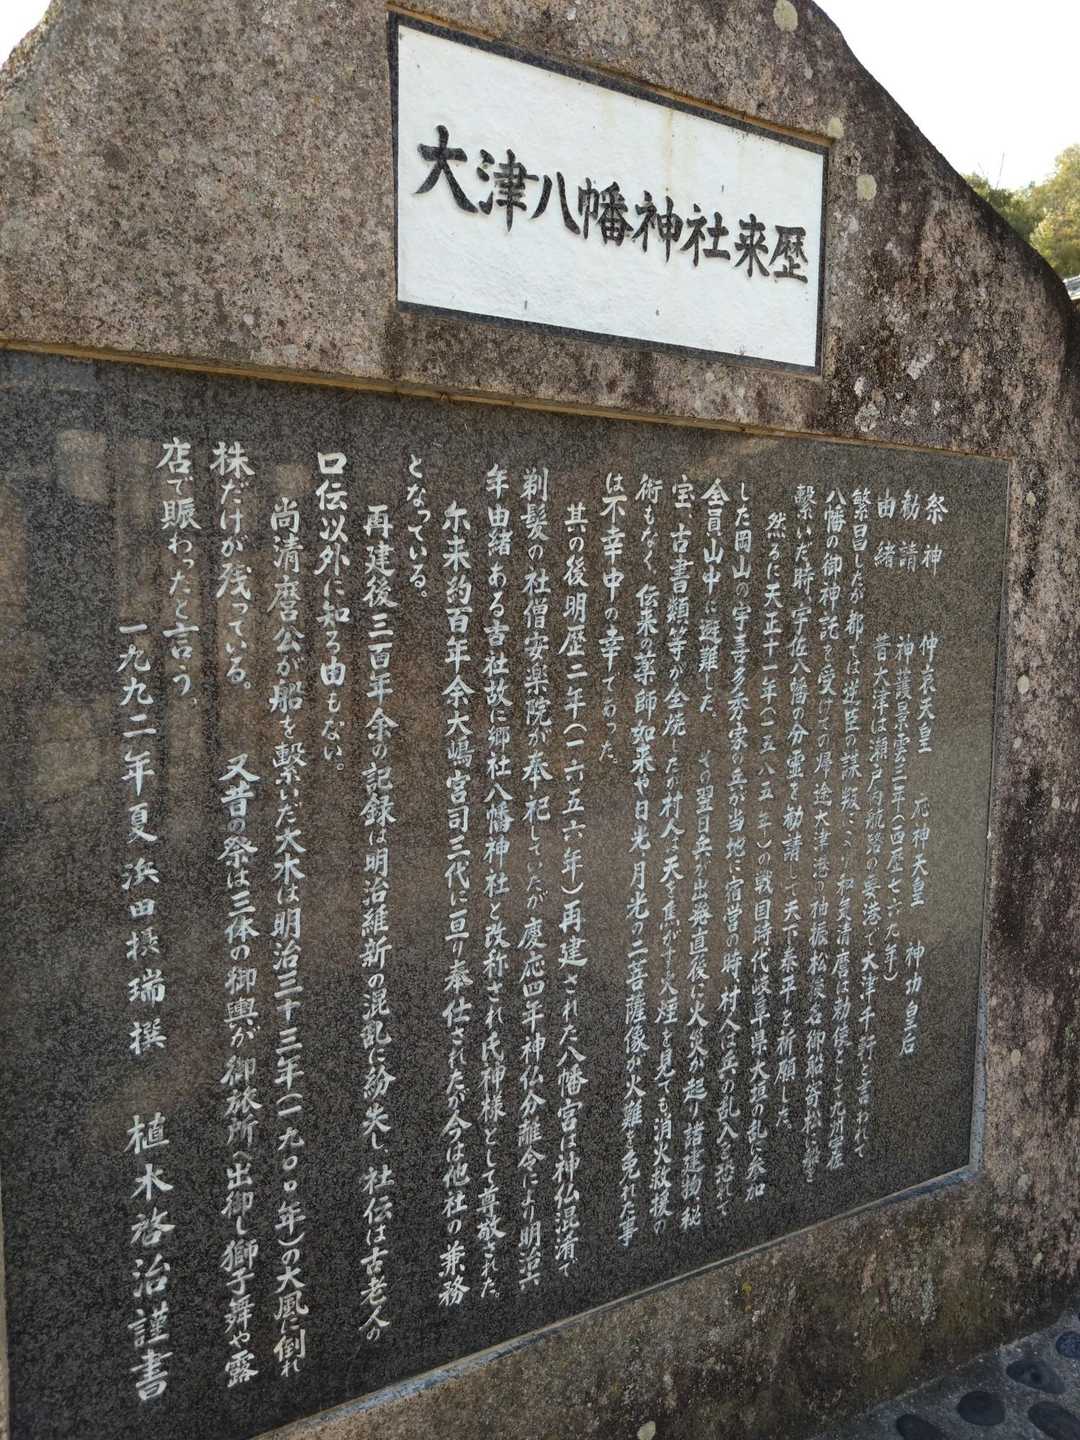 大津八幡神社来歴
祭神 仲哀天皇 応神天皇 神功皇后
勧請 神護景雲三年(西歴七六九年)
由緒 昔大津は瀬戸内航路の要港で大津千軒と言われて
繁昌したが都では逆臣の謀叛により和気清麿は勅使として九州宇佐
八幡の御神託を受けての帰途大津港の神振松後名御船寄松に船を
繋いだ時、宇佐八幡の分霊を勧請して天下泰平を祈願した。
然るに天正十一年(一五八五年)の戦国時代岐阜県大垣の乱に参加
した岡山の宇喜多秀家の兵が当地に宿営の時、村人は兵の乱入を恐れて
全員山中に避難した。 その翌日兵の出発直後に火災が起り諸建物、秘
宝、古書類等が全焼したが村人は天を焦がす火煙を見ても消火救援の
術もなく、伝来の薬師如来や日光、月光の二菩薩像が火難を免れた事
は不幸中の幸であった。
其の後明歴二年(一六五六年)再建された八幡宮は神仏混淆で、
剃髪の社僧安楽院が奉祀していたが慶応四年神仏分離令により明治六
年由緒ある古社故に郷社八幡神社と改称され氏神様として尊敬された。
尓来約百年余大嶋宮司三代に亘り奉仕されたが今は他社の兼務
となっている。
再建後三百年余の記録は明治維新の混乱に紛失し、社伝は古老人の
口伝以外に知る由もない。
尚清麿公が船を繋いだ大木は明治三十三年(一九〇〇年)の大風に倒れ
株だけが残っている。 又昔の祭は三体の御輿が御旅所へ出御し獅子舞や露
店で賑わったと言う。
一九九二年夏 浜田操瑞撰 植木啓治謹書